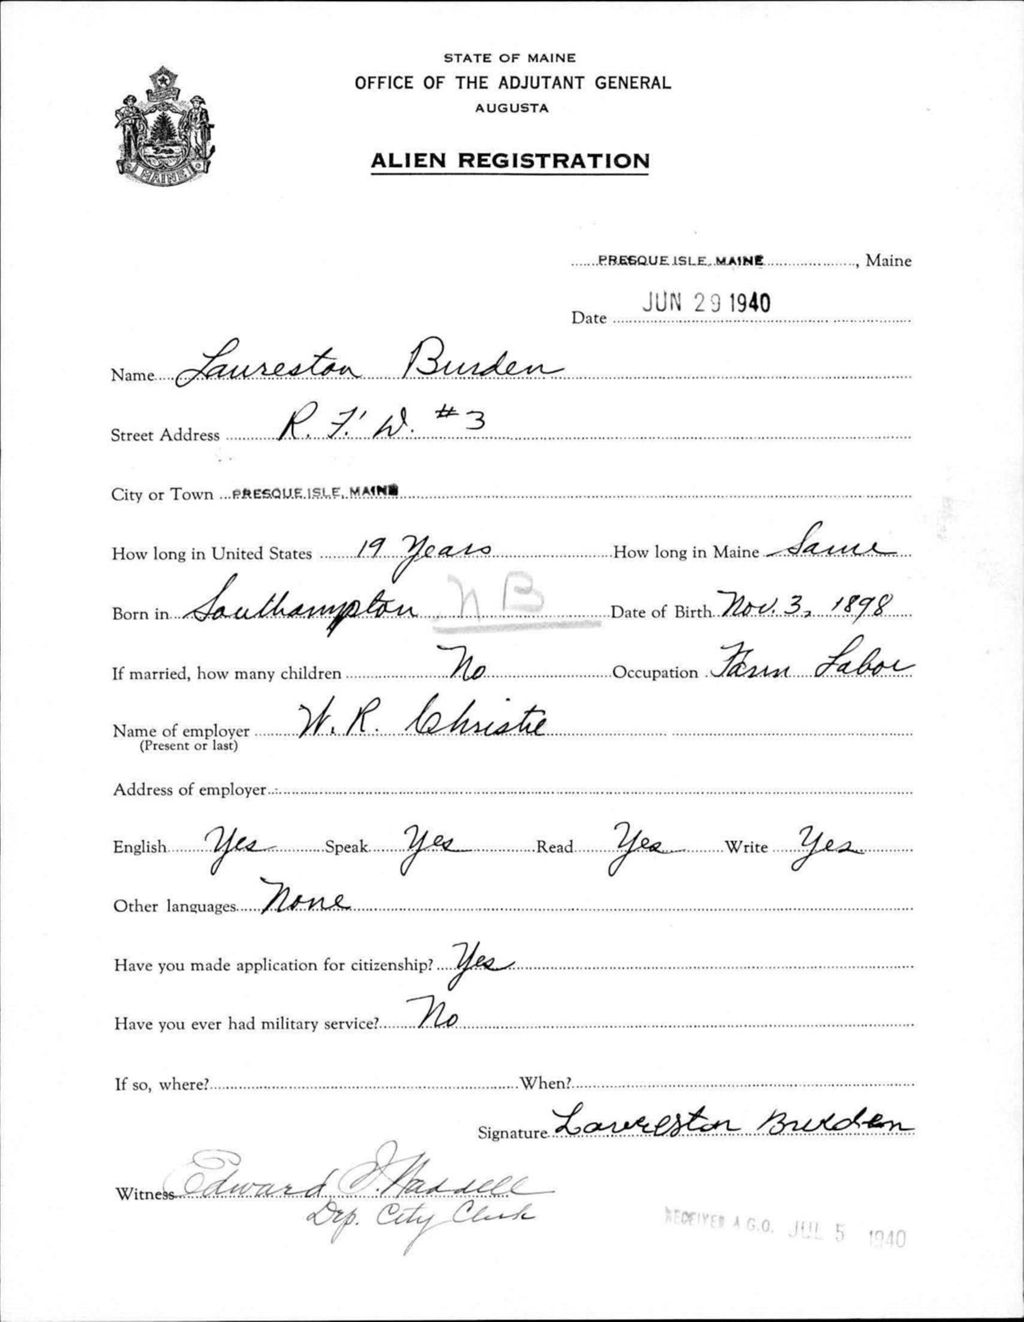 STATE OF MAINE
OFFICE OF THE ADJUTANT GENERAL
AUGUSTA
ALIEN REGISTRATION
MAINE
PRESQUE ISLE, MAINE, Maine
Date JUN 29 1940
Name Laureston Burden
Street Address R. F. D. #3
City or Town PRESQUE ISLE, MAINE
How long in United States 19 Years How long in Maine Same
Born in Southampton NB Date of Birth Nov. 3, 1898
If married, how many children No Occupation Farm Labor
Name of employer W. R. Christie
(Present or last)
Address of employer
English Yes Speak Yes Read Yes Write Yes
Other languages None
Have you made application for citizenship? Yes
Have you ever had military service? No
If so, where? When?
Signature Laureston Burden
Witness Edward J. Waddell
Dep. City Clerk
RECEIVED A.G.O. JUL 5 1940